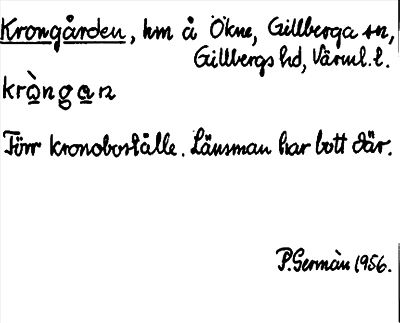 Krongården, hm å Ökne, Gillberga sn,
Gillbergs hd, Värml. l.
krò̱nga̱n
Förr kronoboställe. Länsman har bott där.
P. Germàn 1956.